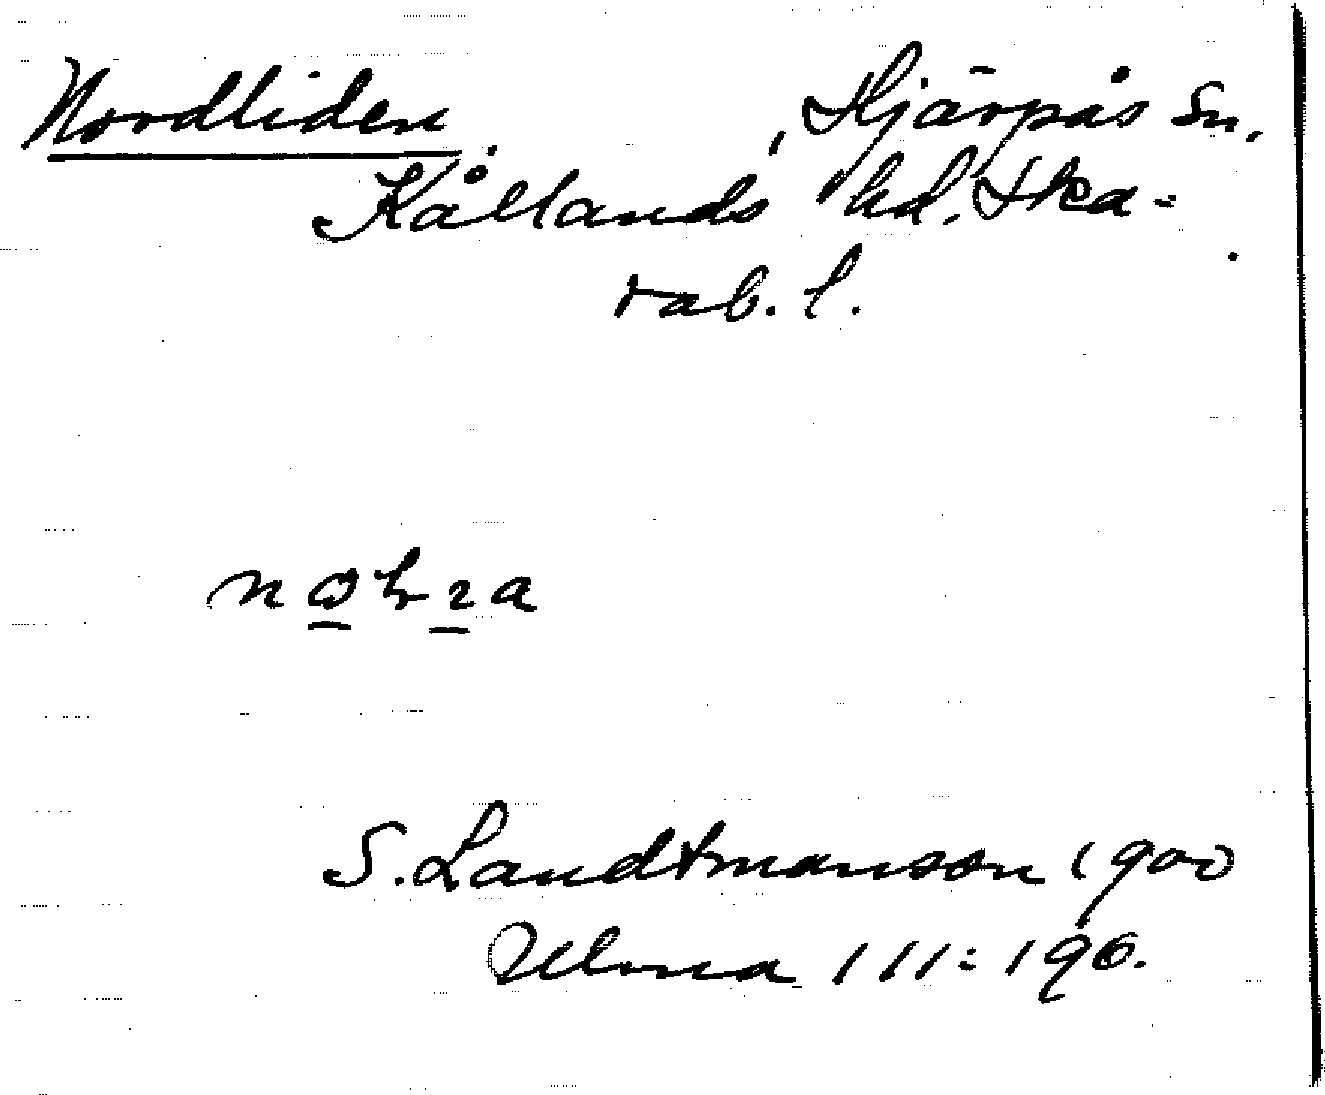 Nordliden, Hjärpås sn,
Kållands hd. Ska-
rab. l.
S. Landtmanson 1900
Ulma 111:190.